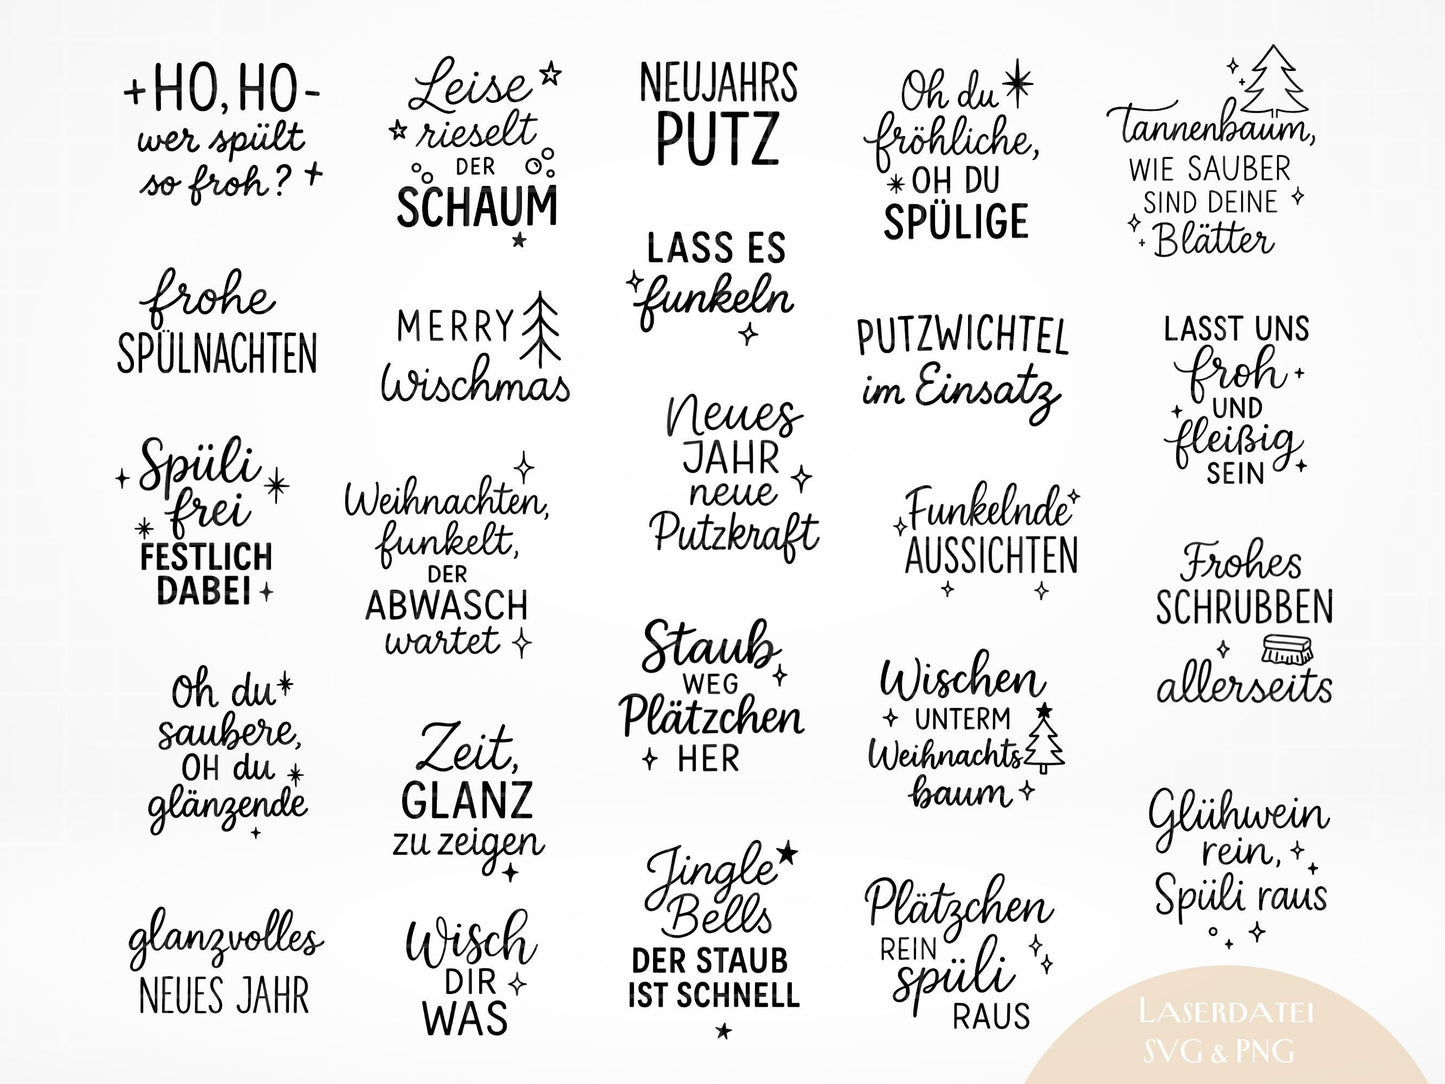 HO, HO-
wer spült
so froh?
frohe
SPÜLNACHTEN
Spüli
frei
FESTLICH
DABEI
Oh du
saubere,
OH du
glänzende
glanzvolles
NEUES JAHR
Leise
rieselt
DER
SCHAUM
MERRY
Wischmas
Weihnachten,
funkelt,
DER
ABWASCH
wartet
Zeit,
GLANZ
zu zeigen
Wisch
DIR
WAS
NEUJAHRS
PUTZ
LASS ES
funkeln
Neues
JAHR
neue
Putzkraft
Staub
WEG
Plätzchen
HER
Jingle
Bells
DER STAUB
IST SCHNELL
Oh du
fröhliche,
OH DU
SPÜLIGE
PUTZWICHTEL
im Einsatz
Funkelnde
AUSSICHTEN
Wischen
UNTERM
Weihnachts
baum
Plätzchen
REIN
spüli
RAUS
Tannenbaum,
WIE SAUBER
SIND DEINE
Blätter
LASST UNS
froh
UND
fleißig
SEIN
Frohes
SCHRUBBEN
allerseits
Glühwein
rein,
Spüli raus
LASERDATEI
SVG & PNG